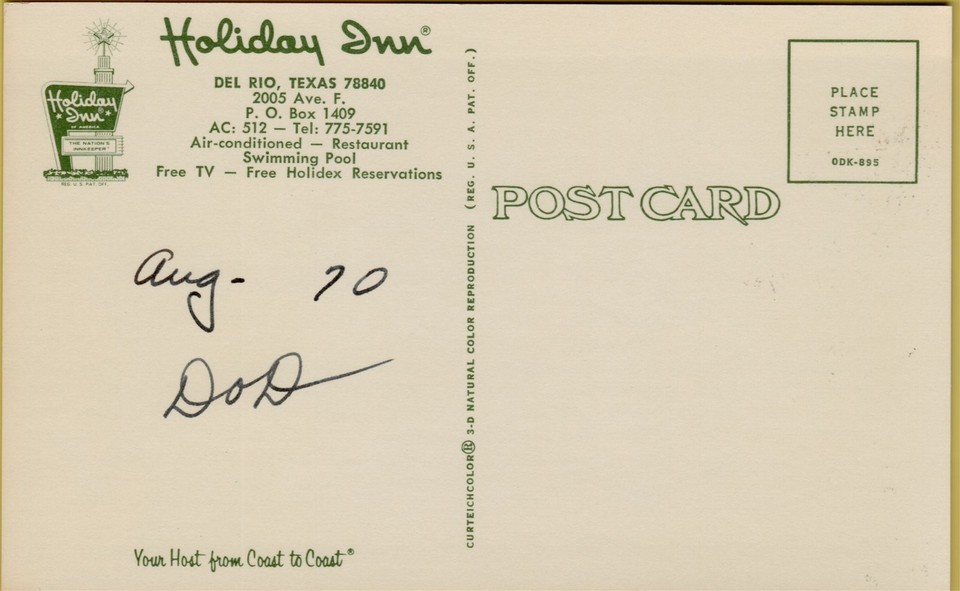 Holiday Inn®
DEL RIO, TEXAS 78840
2005 Ave. F.
P. O. Box 1409
AC: 512 — Tel: 775-7591
Air-conditioned — Restaurant
Swimming Pool
Free TV — Free Holidex Reservations
Holiday
Inn
OF AMERICA
THE NATION'S
INNKEEPER
REG. U.S. PAT. OFF.
Aug- 70
DoD
Your Host from Coast to Coast®
CURTEICHCOLOR® 3-D NATURAL COLOR REPRODUCTION (REG. U. S. A. PAT. OFF.)
POST CARD
PLACE
STAMP
HERE
0DK-895